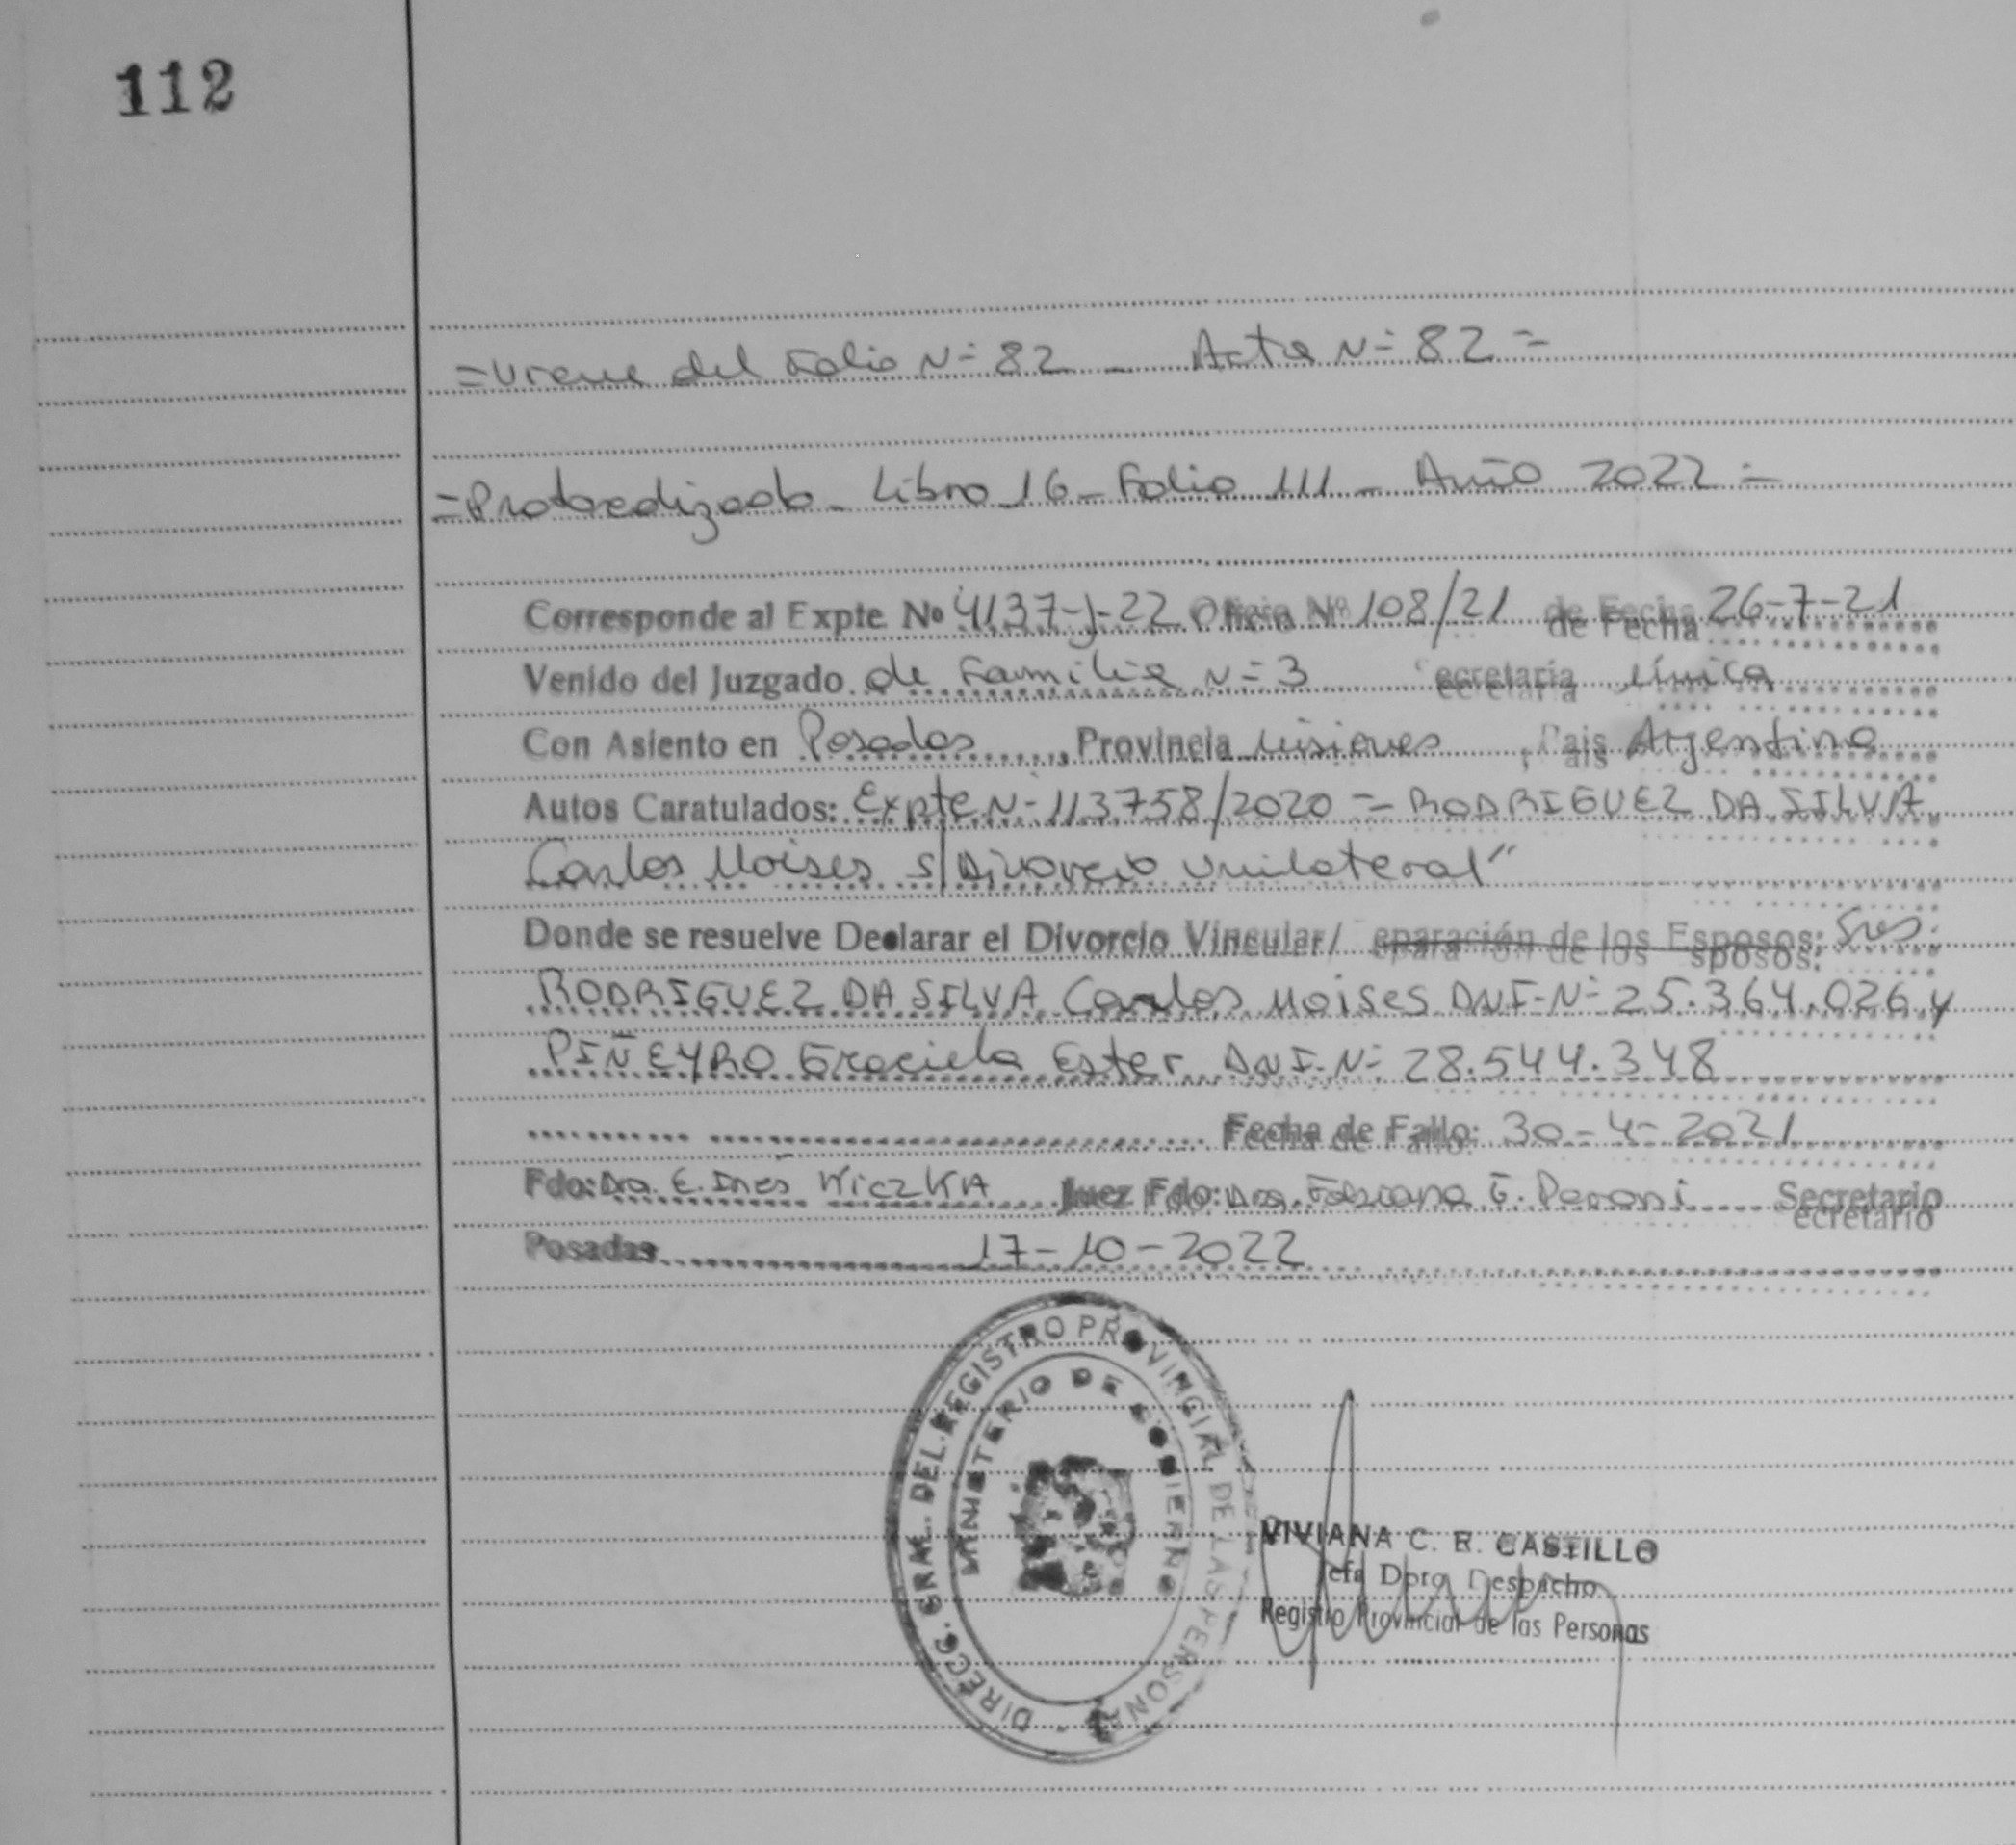 112
=Viene del Folio Nº 82 - Acta Nº 82 =
=Protocolizado - Libro 16 - Folio 111 - Año 2022 =
Corresponde al Expte Nº 4137-J-22 Oficio Nº 108/21 de Fecha 26-7-21
Venido del Juzgado de Familia Nº 3 Secretaría Única
Con Asiento en Posadas, Provincia Misiones, Pais Argentina
Autos Caratulados: Expte Nº 113758/2020 = RODRIGUEZ DA SILVA
Carlos Moises S/Divorcio Unilateral"
Donde se resuelve Declarar el Divorcio Vincular/ Separación de los Esposos: Sres.
RODRIGUEZ DA SILVA Carlos Moises DNI-Nº 25.364.026 y
PIÑEYRO Graciela Ester DNI-Nº 28.544.348
Fecha de Fallo: 30-4-2021
Fdo: Dra. E. Inés WiczKA Juez Fdo: Dra. Fabiana E. Peroni Secretario
Posadas 17-10-2022
DIRECC. GRAL. DEL REGISTRO PROVINCIAL DE LAS PERSONAS
MINISTERIO DE GOBIERNO
VIVIANA C. R. CASTILLO
Jefa Dpto. Despacho
Registro Provincial de las Personas